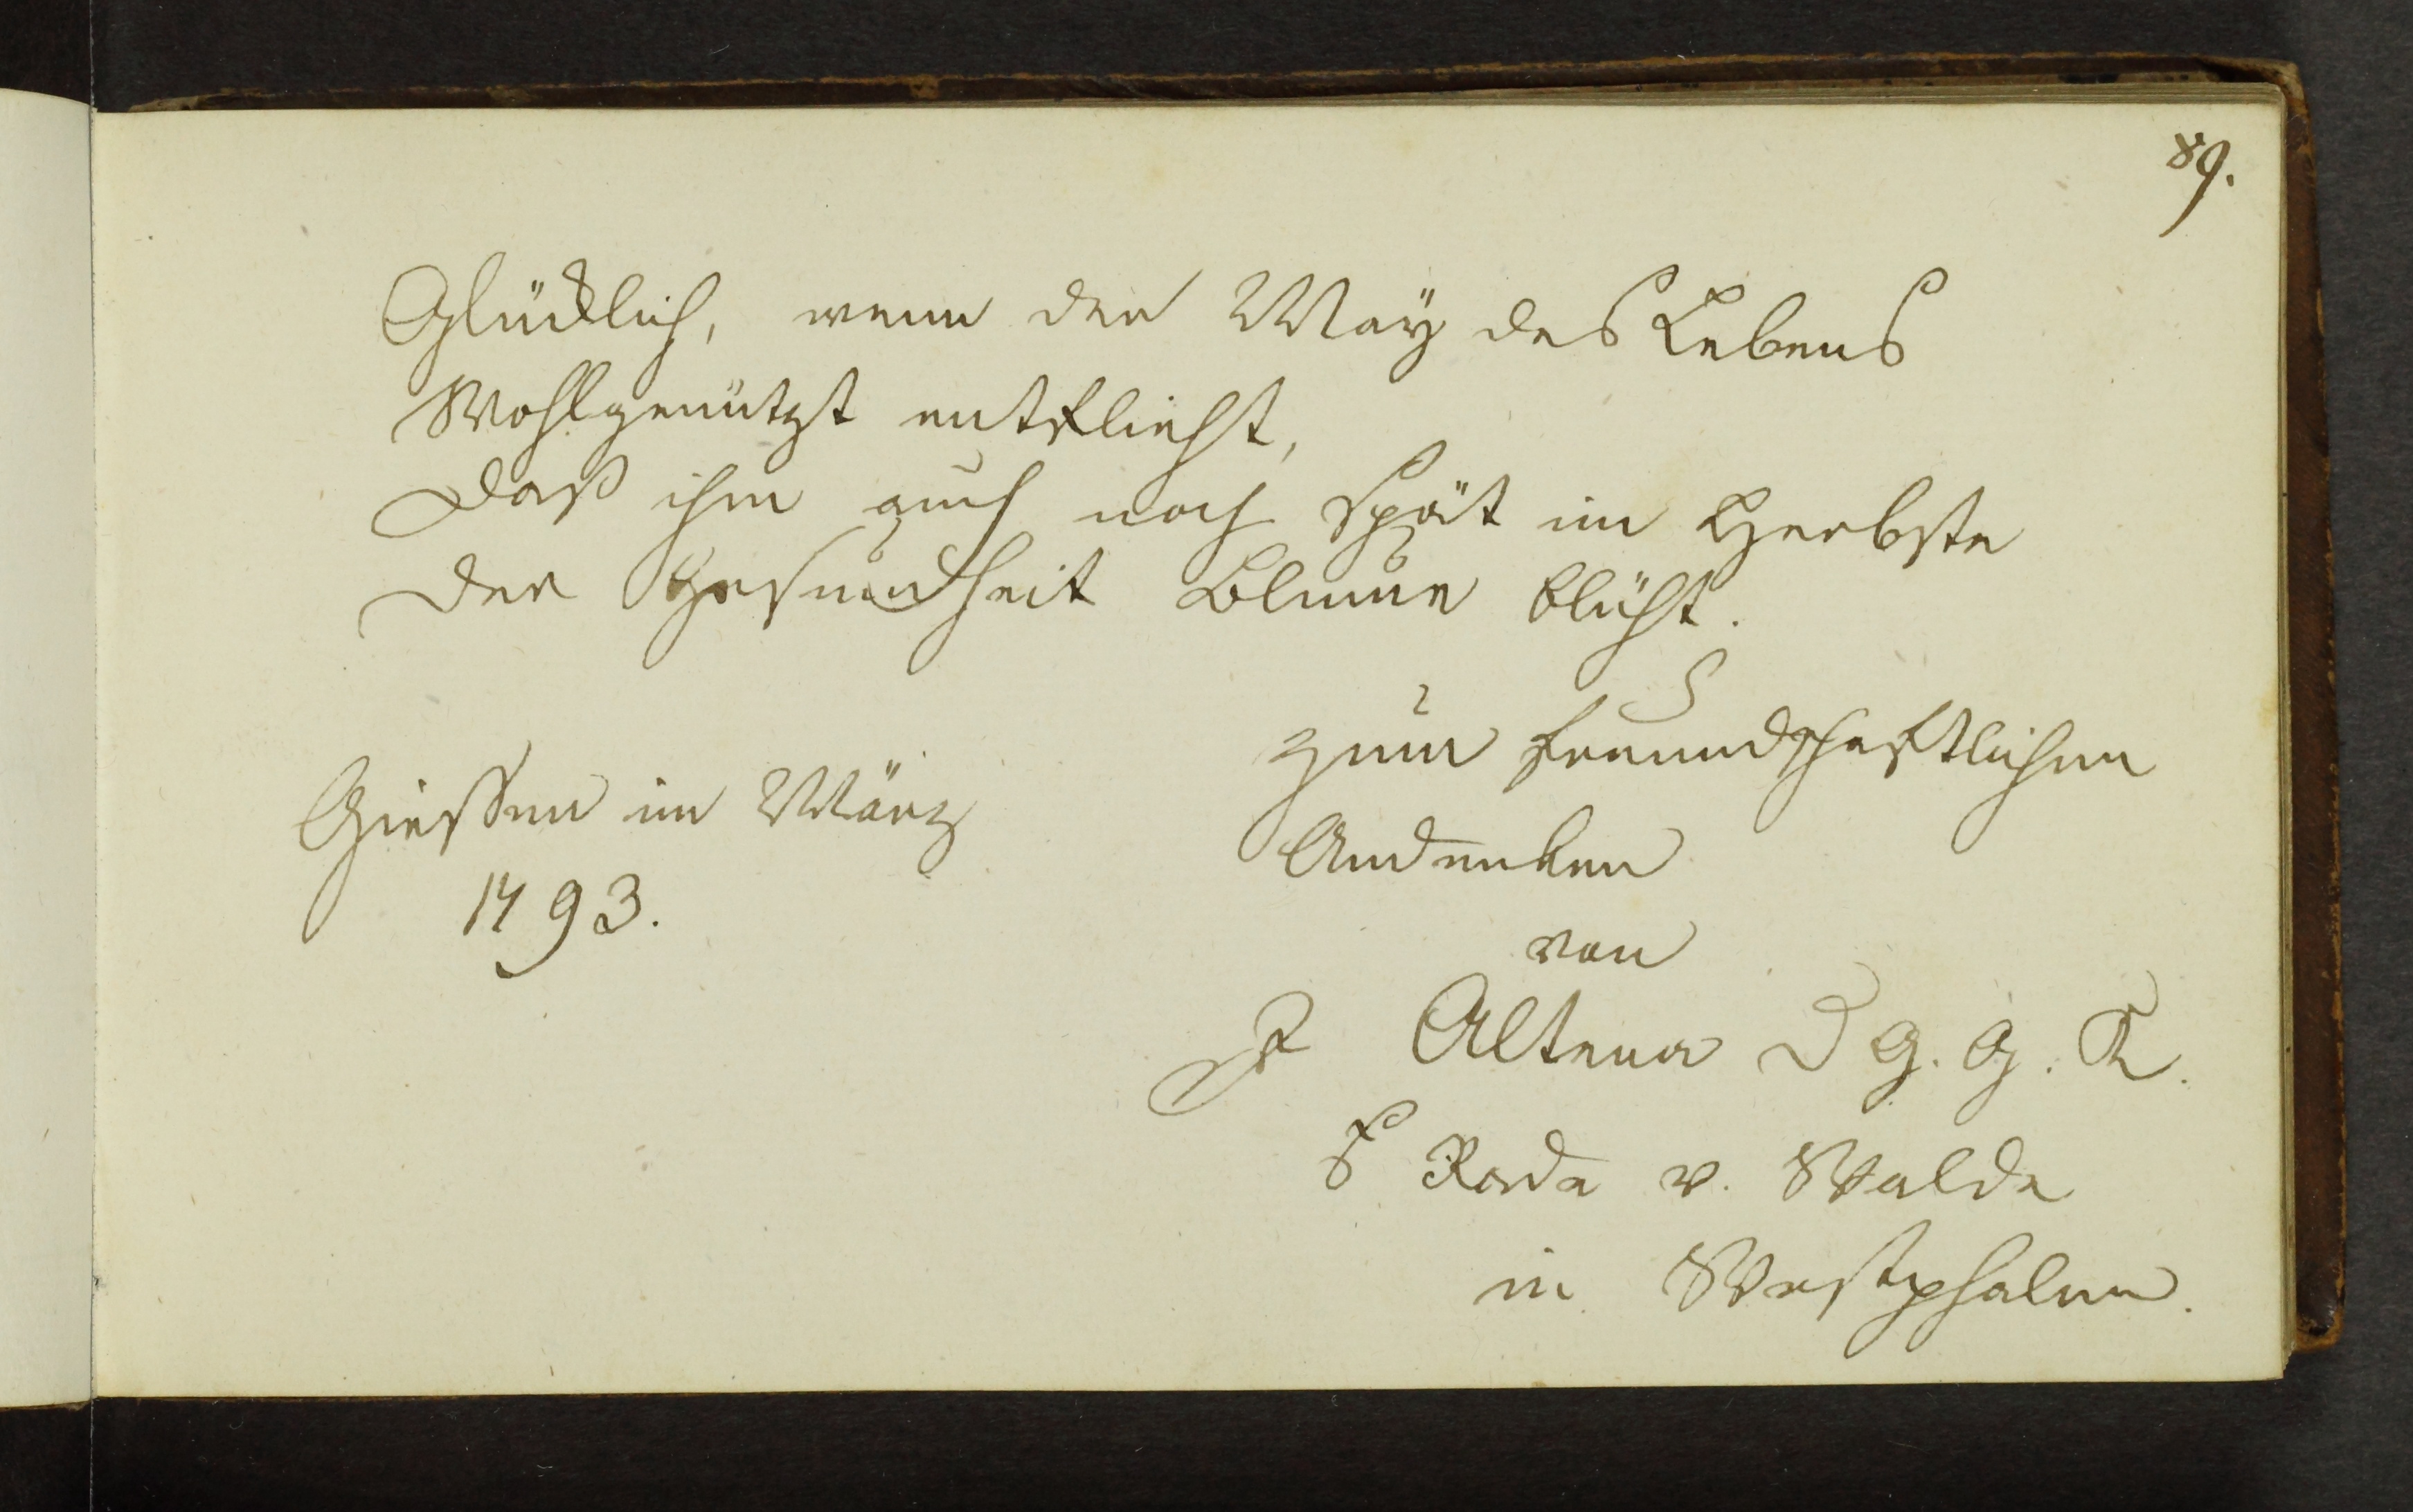 89.
Glücklich, wenn der May des Lebens
Wohlgenützt entflieht,
Daß ihm auch noch spät im Herbste
Der Gesundheit Blume blüht.
zum freundschaftlichen
Giessen im März
Andenken
1793.
von
Altena D G. G. K.
Rade v. Walde
in Westphalen.